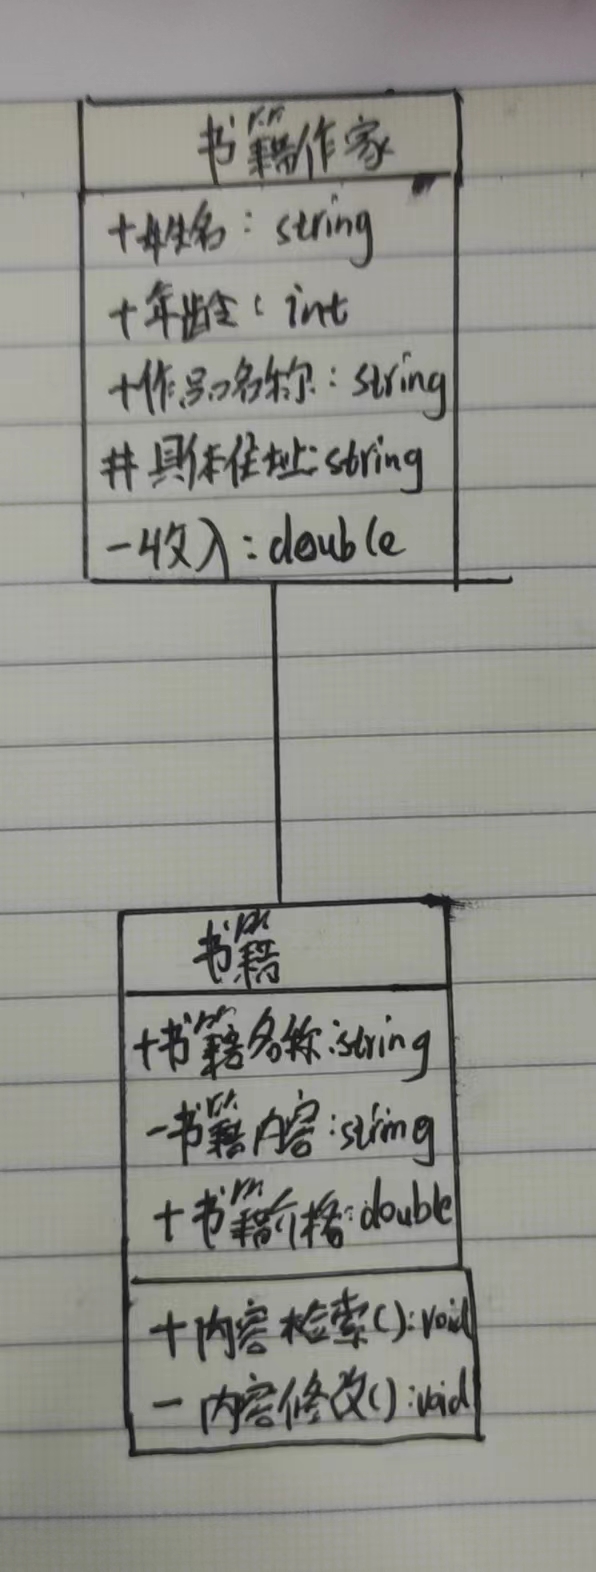 书籍作家
+姓名: string
+年龄: int
+作品名称: string
#具体住址:string
-收入:double
书籍
+书籍名称:string
-书籍内容:string
+书籍价格:double
+内容检索():void
-内容修改():void